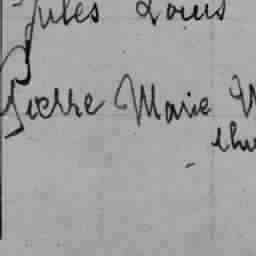 Jules Louis
Pierre Marie